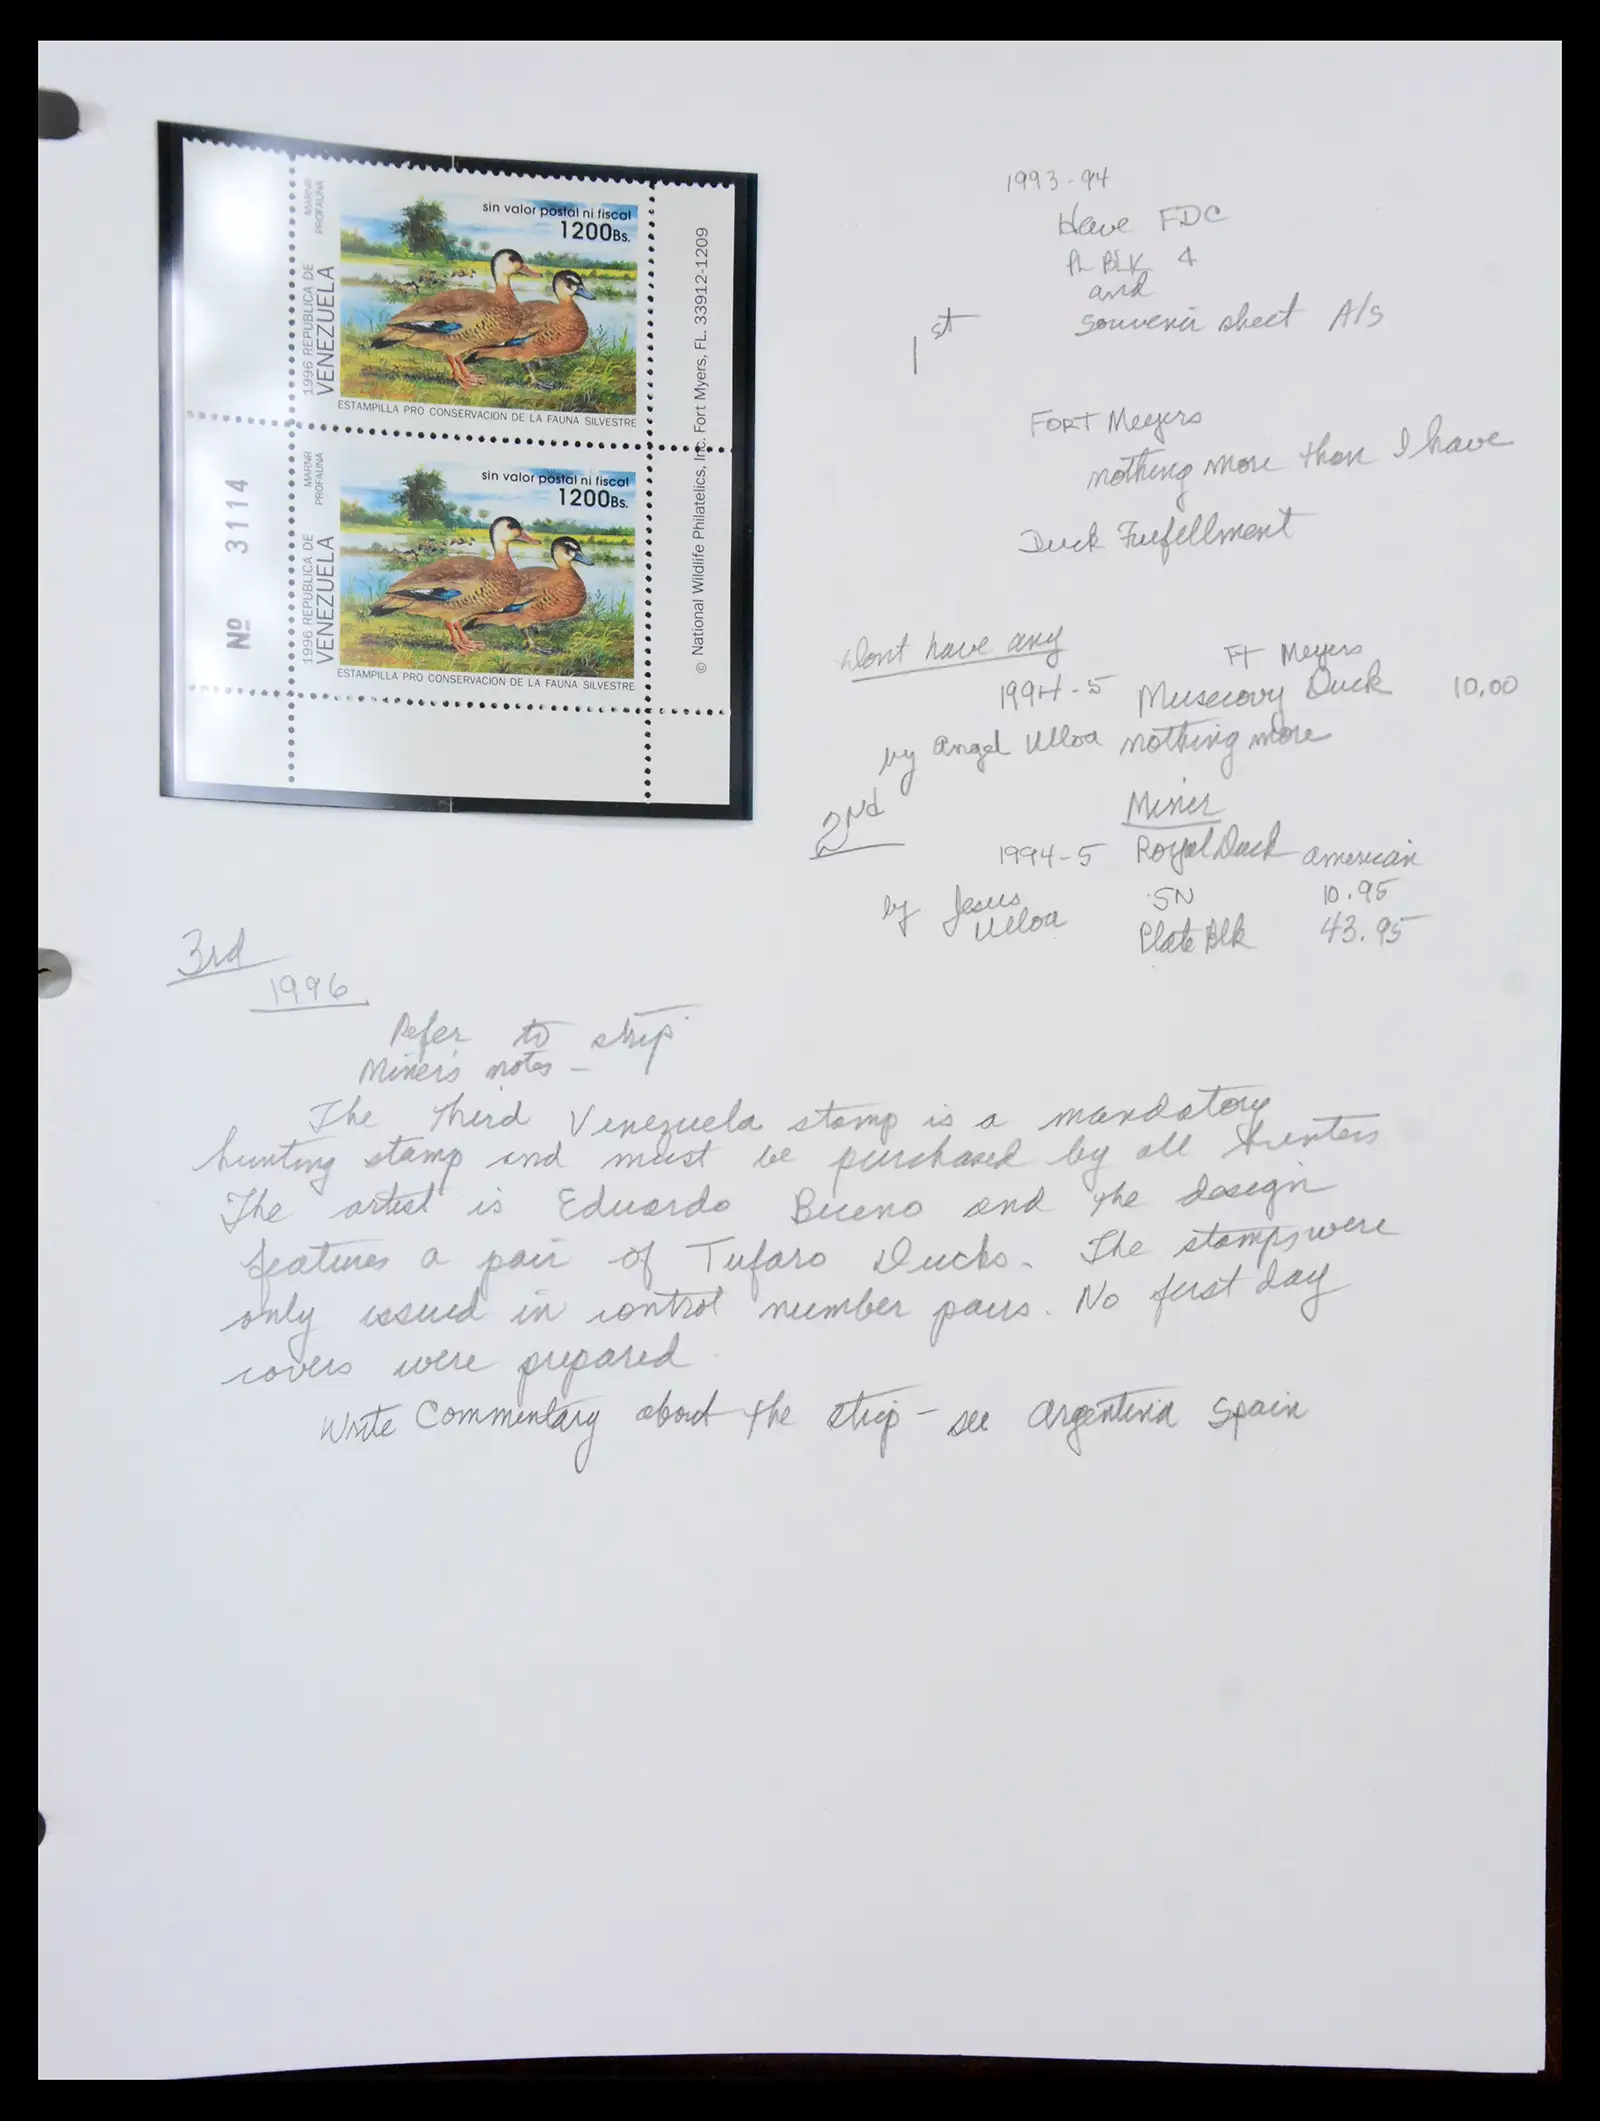 MARNR
PROFAUNA
1996 REPUBLICA DE
VENEZUELA
sin valor postal ni fiscal
1200Bs.
ESTAMPILLA PRO CONSERVACION DE LA FAUNA SILVESTRE
MARNR
PROFAUNA
1996 REPUBLICA DE
VENEZUELA
sin valor postal ni fiscal
1200Bs.
ESTAMPILLA PRO CONSERVACION DE LA FAUNA SILVESTRE
Nº 3114
© National Wildlife Philatelics, Inc. Fort Myers, FL. 33912-1209
1993-94
Have FDC
PL BLK 4
and
1st souvenir sheet A/S
FORT Meyers
nothing more than I have
Duck Fulfillment
Dont have any
Ft Meyers
1994-5 Muscovy Duck 10.00
by Angel Ulloa nothing more
2nd
Miner
1994-5 Royal Duck american
by Jesus Ulloa
SN 10.95
Plate Blk 43.95
3rd
1996
Refer to strip
Miner's notes -
The third Venezuela stamp is a mandatory
hunting stamp and must be purchased by all hunters
The artist is Eduardo Bueno and the design
features a pair of Tufaro Ducks. The stamps were
only issued in control number pairs. No first day
covers were prepared
Write Commentary about the strip - see Argentina Spain